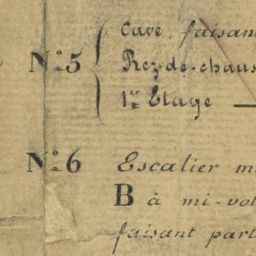 Cave, faisan
N° 5 Rez-de-chaus
1er Etage —
N° 6 Escalier m
B à mi-vol
faisant part